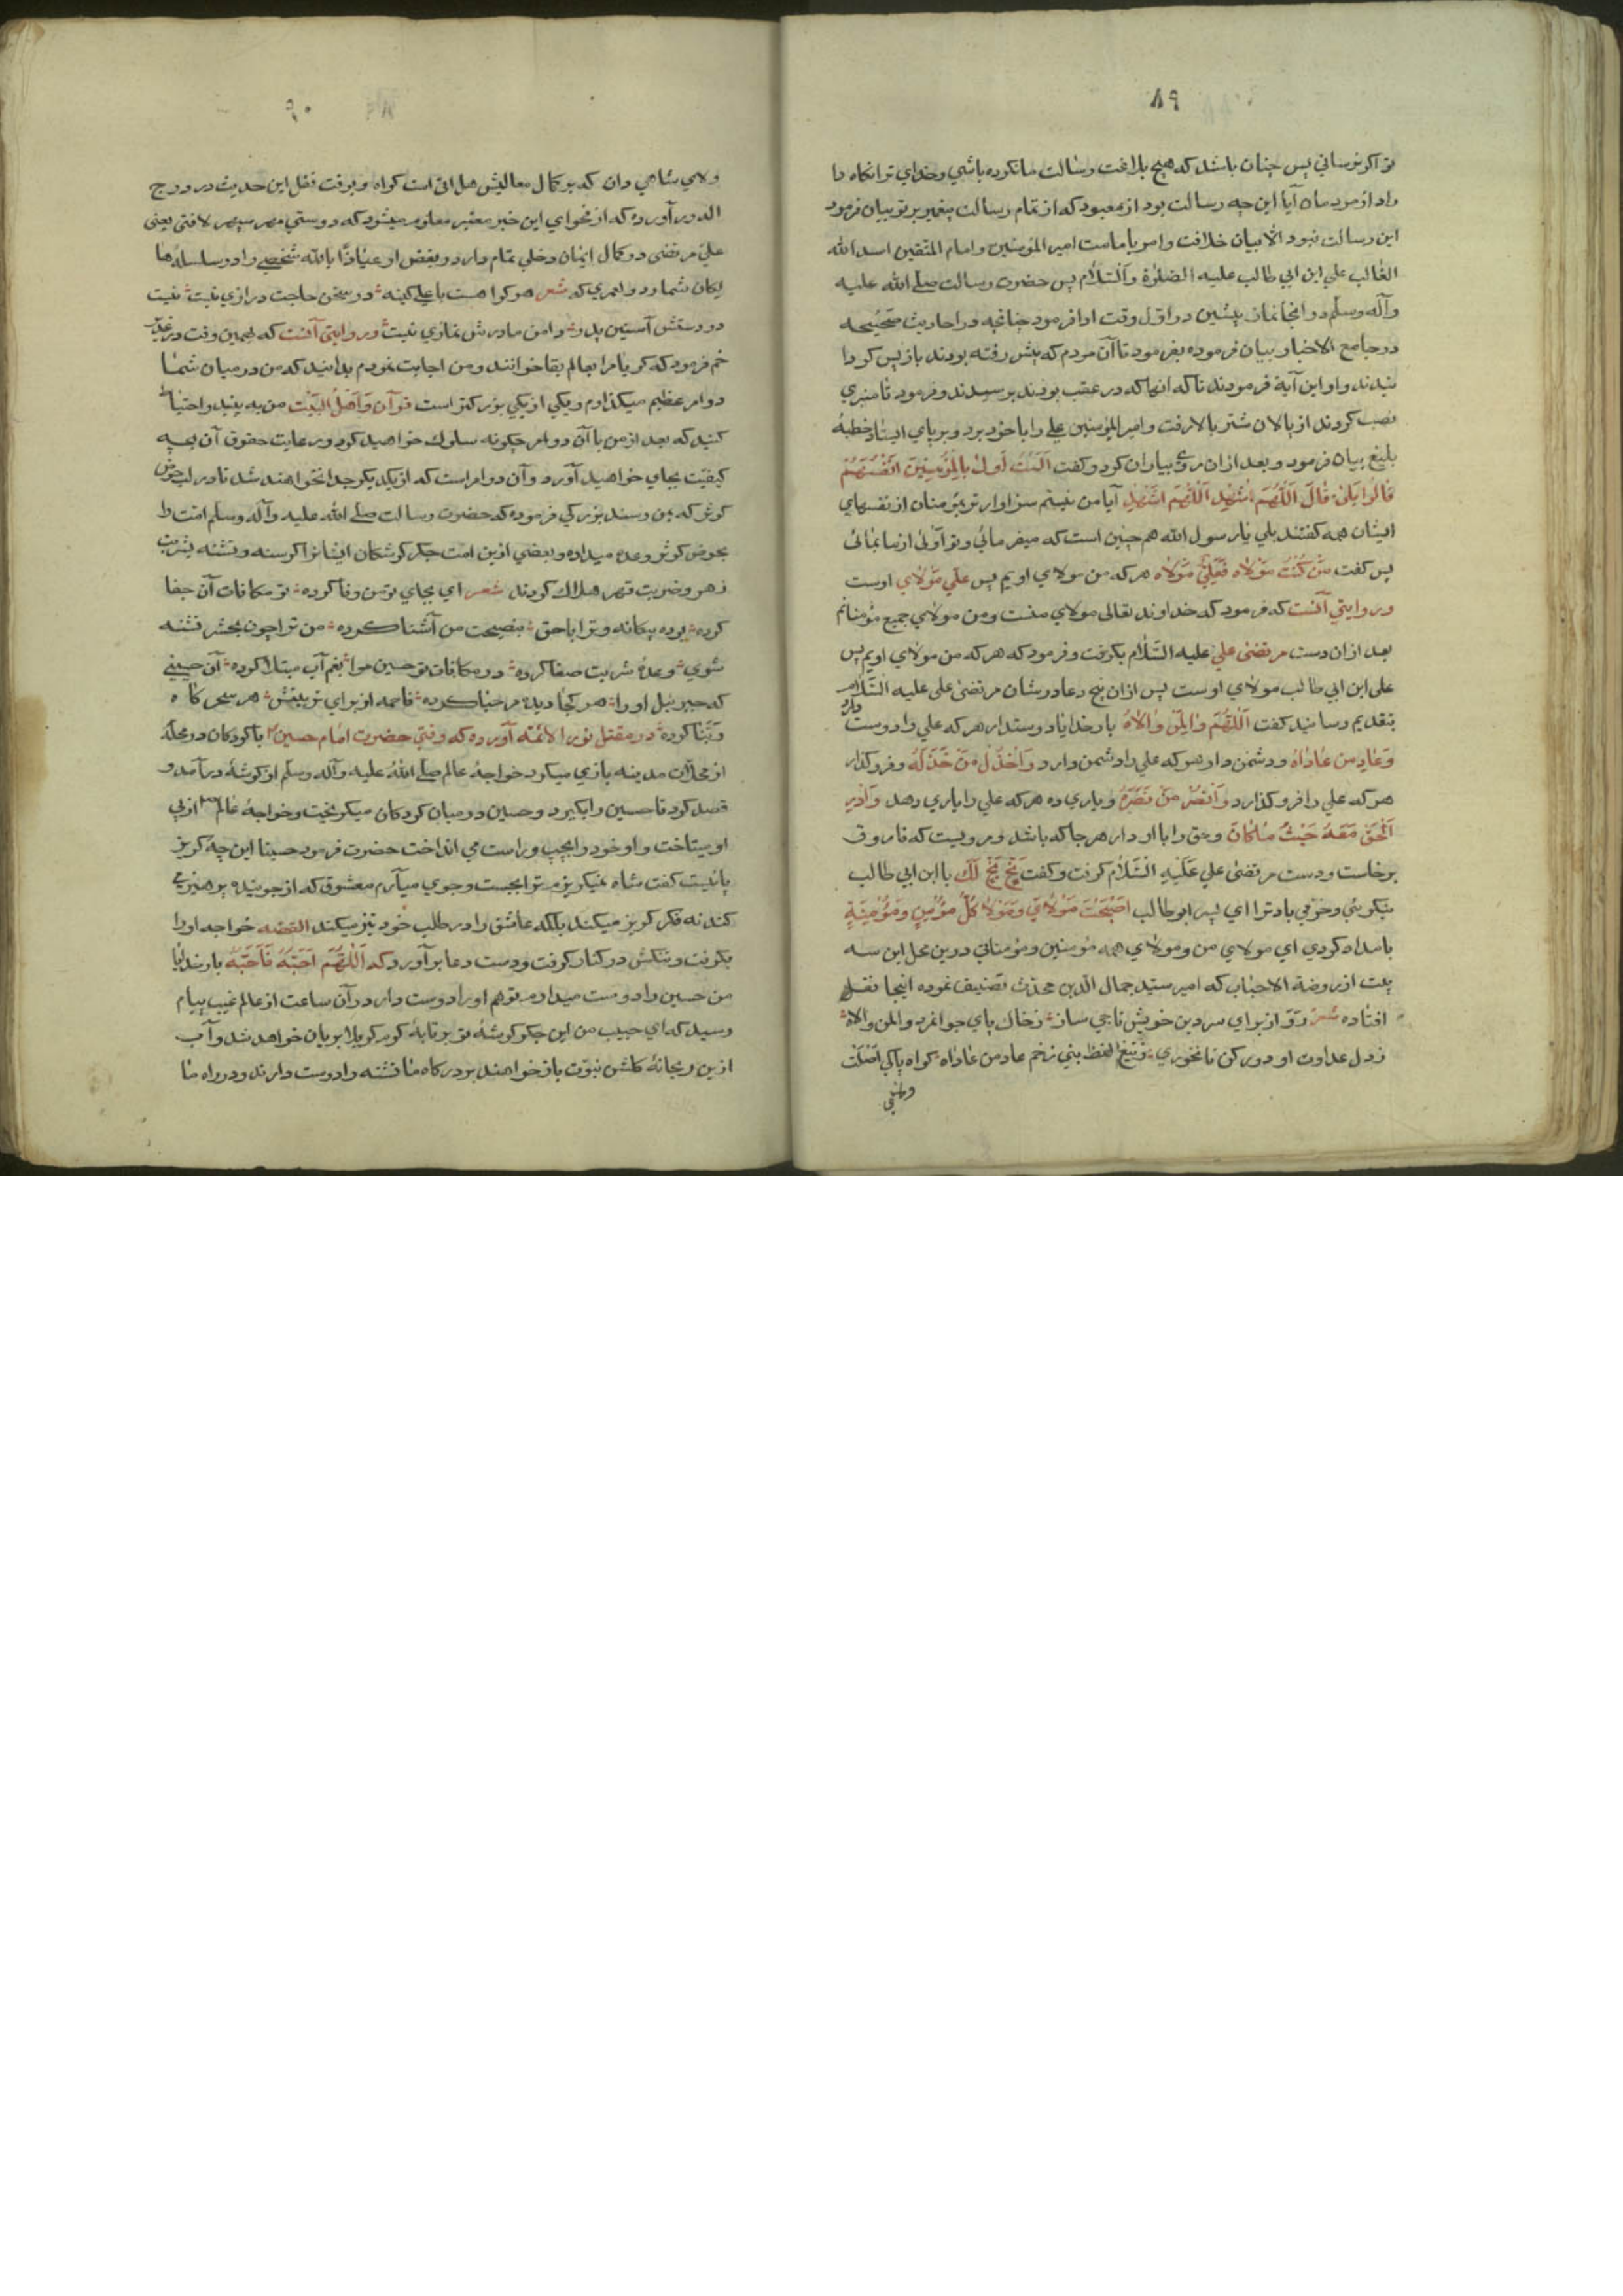 ۸۹
تو اکر نرسانی پس چنان باشد که هیچ بلاغت رسالت ما نکرده باشی وخدای ترا نکاه دا
راد از مردمان آیا این چه رسالت بود از معبود که از تمام رسالت پیغمبر بر تو بیان فرمود
این رسالت نبود الا بیان خلافت وامر بامامت امیر المؤمنین وامام المتقین اسد الله
الغالب علي ابن ابي طالب علیه الصلوة والسّلام پس حضرت رسالت صلے الله علیه
وآله وسلّم در انجا نماز پیشین در اوّل وقت ادا فرمود چنانچه در احادیث صحیحه
در جامع الاخبار بیان فرموده بفرمود تا آن مردم که پیش رفته بودند باز پس کردا
نیدند واو این آیة فرمودند تا که انها که در عقب بودند برسیدند وفرمود تا منبري
نصب کردند از پالان شتر بالا رفت وامیر المؤمنین علے را با خود برد وبر پاي ایستاد خطبۀ
بلیغ بیان فرمود وبعد ازان روی بیاران کرد وکفت اَلَسْتُ اَولیٰ بِالمُؤْمِنِینَ اَنْفُسَهُمْ
قالُوا بَلیٰ قٰالَ اَللّٰهُمَّ اشْهَدْ اَللّٰهُمَّ اشْهَدْ آیا من نیستم سزاوار تر بمؤمنان از نفسهاي
ایشان همه کفتند بلي یا رسول الله هم چنین است که میفرمائي وتو اَوْلیٰ از مائي
پس کفت مَنْ کُنْتُ مَوْلاه فَعَلِیٌّ مَوْلاه هر که من مولاي اویم پس علي مَوْلاي اوست
ور روایتي آنست که فرمود که خداوند تعالی مولاي منست ومن مولاي جمیع مؤمنانم
بعد ازان دست مرتضیٰ علي علیه السَّلٰام بکرفت وفرمود که هر که من مولاي اویم پس
علی ابن ابي طالب مولاي اوست پس ازان پنج دعا در شان مرتضیٰ علی علیه السَّلٰام
بتقدیم رسانید کفت اَللّٰهُمَّ وٰالِ مَنْ وٰالاهُ بار خدایا دوستدار هر که علي را دوست دارد
وَعٰادِ مَن عٰادٰاهُ ودشمن دار هر که علي را دشمن دارد وَاخْذُلْ مَنْ خَذَلَهُ وفرو کذار
هر که علي را فرو کذارد وَانْصُرْ مَنْ نَصَرَهُ ویاري ده هر که علي را یاري دهد وَاَدِرِ
الْحَقَّ مَعَهُ حَیْثُ مٰا کٰانَ وحق را با او دار هر جا که باشد ومرویست که فاروق
برخاست ودست مرتضیٰ علي عَلَیْهِ السَّلٰامُ کرفت وکفت بَخٍ بَخٍ لَکَ یا ابن ابي طالب
نیکوئي وخوبي باد ترا اي پسر ابو طالب اَصْبَحْتَ مَوْلايَ وَمَوْلا کُلِّ مُؤْمِنٍ وَمُؤْمِنَةٍ
بامداد کردي اي مولاي من ومولاي همه مؤمنین ومؤمناتي درین محل این سه
بیت از روضة الاحباب که امیر سیّد جمال الدین محدّث تصنیف نموده اینجا نقل
افتاده شعر رَوْ از براي سر دین خویش تاجي ساز ز خاك پاي جوانمرد وال من والاه
ز دل عداوت او دور کن تا نخوري ز تیغ لفظ نبي زخم عاد من عاداه کواه پاکي اَصْلَت
ولای
۹۰
ولاي شاهي دان که بر کمال معالیش هل اتی است کواه وبوقت نقل این حدیث در درج
الدرر آورده که از فحواي این خبر معتبر معلوم میشود که دوستي مهر سپهر لافتی یعنی
علي مرتضی در کمال ایمان دخلي تمام دارد وبغض او عیاذًا بالله شخصے را در سلسله ها
یکان شمارد ولعمري که شعر هر کرا هست با علے کینه در سخن حاجت درازي نیست نیست
در دستش آستین پدر دامن مادرش نمازي نیست ور روایتی آنست که همین وقت در غدیر
خم فرمود که کریا مرا بعالم بقا خوانند ومن اجابت نمودم بدانید که من در میان شما
دو امر عظیم میکذارم ویکي از یکي بزرکتر است قرآن وَاَهْلُ البَیْت من به بینید واحتیاط
کنید که بعد از من با آن دو امر چکونه سلوك خواهید کرد ورعایت حقوق آن بچه
کیفیّت بجاي خواهید آورد وآن دو امر است که از یکدیکر جدا نخواهند شد تا در لب حوض
کوثر که بمن رسند بزرکي فرموده که حضرت رسالت صلے الله علیه وآله وسلم امّت را
بحوض کوثر وعده میداده وبعضي ازین امّت جکر کوشکان ایشانرا کرسنه وتشنه بشربت
زهر وضربت قهر هلاك کردند شعر اي بجاي تو من وفا کرده تو مکافات آن جفا
کرده بوده بیکانه وترا با حق بنصیحت من آشنا کرده من ترا چون بحشر تشنه
شوي وعده شربت صفا کرده در مکافات تو حسین مرا بغم آب مبتلا کرده آن حسینے
که جبرئیل اورا هر کجا دیده مرحبا کرده فاطمه از براي تربیتش هر سحر کاه
ربّنا کرده در مقتل نور الائمّه آورده که وقتی حضرت امام حسین با کودکان در محلۀ
از محلات مدینه بازي میکرد خواجۀ عالم صلے الله علیه وآله وسلم از کوشۀ درآمد و
قصد کرد تا حسین را بکیرد وحسین در میان کودکان میکریخت وخواجۀ عالم از پي
او میتاخت واو خود را بچپ وراست مي انداخت حضرت فرمود حسینا این چه کریز
پائیست کفت شاه نمیکریزم ترا بجست وجوي میآرم معشوق که از جوینده پرهیزے
کند نه فکر کریز میکند بلکه عاشق را در طلب خود تیز میکند القصّه خواجه اورا
بکرفت وتنکش در کنار کرفت ودست دعا بر آورد که اَللّٰهُمَّ اُحِبُّهُ فَاَحِبَّهُ بار خدایا
من حسین را دوست میدارم تو هم اورا دوست دار در آن ساعت از عالم غیب پیام
رسید که اي حبیب من این جکر کوشۀ تو بر تابۀ کرم کربلا بریان خواهد شد وآب
ازین ریحانۀ کلشن نبوّت باز خواهند بر درکاه ما تشنه را دوست دارند ودر راه ما